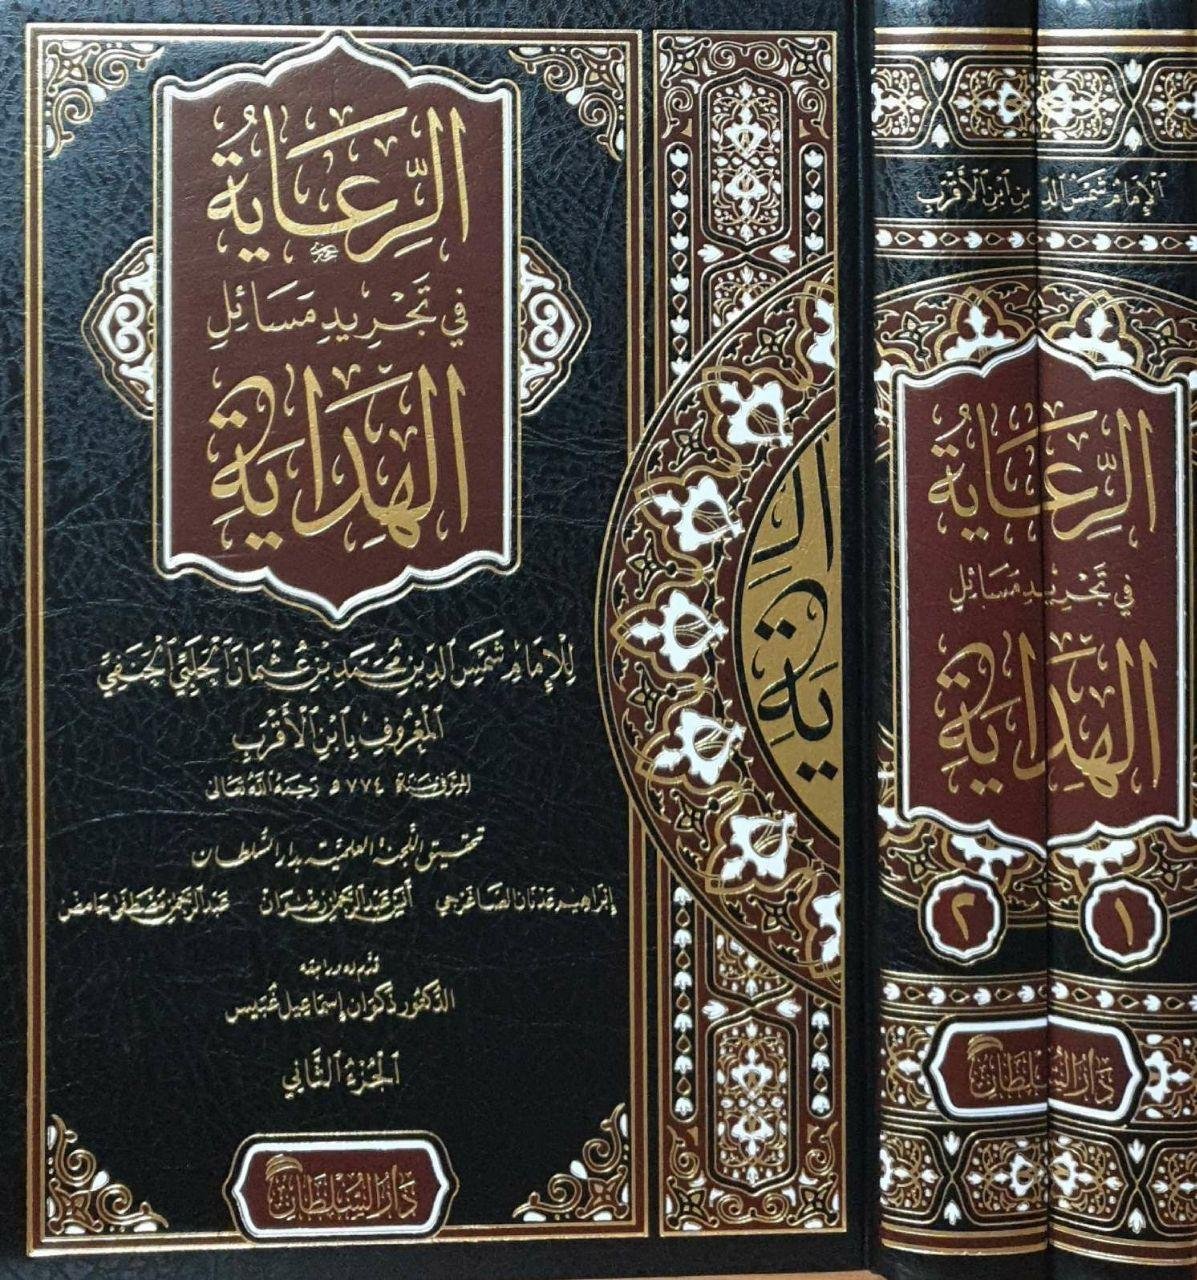 الرِّعَايَةُ
في تَجْرِيدِ مَسَائِلِ
الهِدَايَةِ
لِلْإِمَامِ شَمْسِ الدِّينِ مُحَمَّدِ بْنِ عُثْمَانَ الْحَلَبِيِّ الْحَنَفِيِّ
الْمَعْرُوفِ بِابْنِ الْأَقْرَبِ
المتوفى سنة ٧٧٤ هـ رَحِمَهُ اللهُ تَعَالَى
تحقيق اللجنة العلمية بدار السُّلطان
إبراهيم عدنان الصاغرجي أنس عبد الرحمن رضوان عبد الرحمن مصطفى حامض
قدم له وراجعه
الدكتور ذكوان إسماعيل غبيس
الْجُزْءُ الثَّانِي
دَارُ السُّلْطَان
الْإِمَامُ شَمْسُ الدِّينِ ابْنُ الْأَقْرَبِ
الرِّعَايَةُ
في تَجْرِيدِ مَسَائِلِ
الهِدَايَةِ
١
٢
دَارُ السُّلْطَان